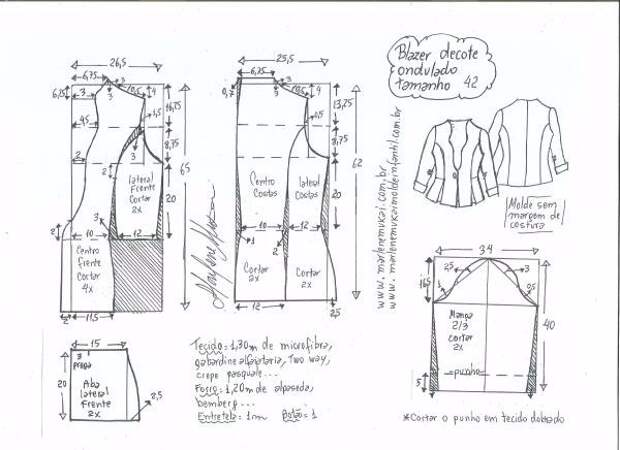 Blazer decote
ondulado
tamanho 42
26,5
6,75
3
10,5
4
6,75
3
16,75
1,5
45
8,75
3
2
2
lateral
Frente
Cortar
2x
20
65
3
10
12
2
Centro
frente
Cortar
4x
2
11,5
25,5
6,75
0,7
3
10,5
4
13,25
1,5
8,75
62
20
Centro
Costas
lateral
Costas
10
12
1
2
Cortar
2x
Cortar
2x
12
2,5
www.marlenemukai.com.br
www.marlenemukaimoldeinfantil.com.br
Molde sem
margem de
costura
34
2,5
3
16,5
1
0,5
Manga
2/3
cortar
2x
40
punho
5
*Cortar o punho em tecido dobrado
15
3
prega
20
Aba
lateral
frente
2x
2,5
Tecido=1,30m de microfibra,
gabardine alfaiataria, Two way,
crepe pasquale...
Forro=1,20m de alpaseda,
bemberg...
Entretela=1m Botão=1